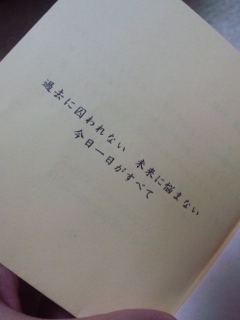 過去に囚われない　未来に悩まない
今日一日がすべて